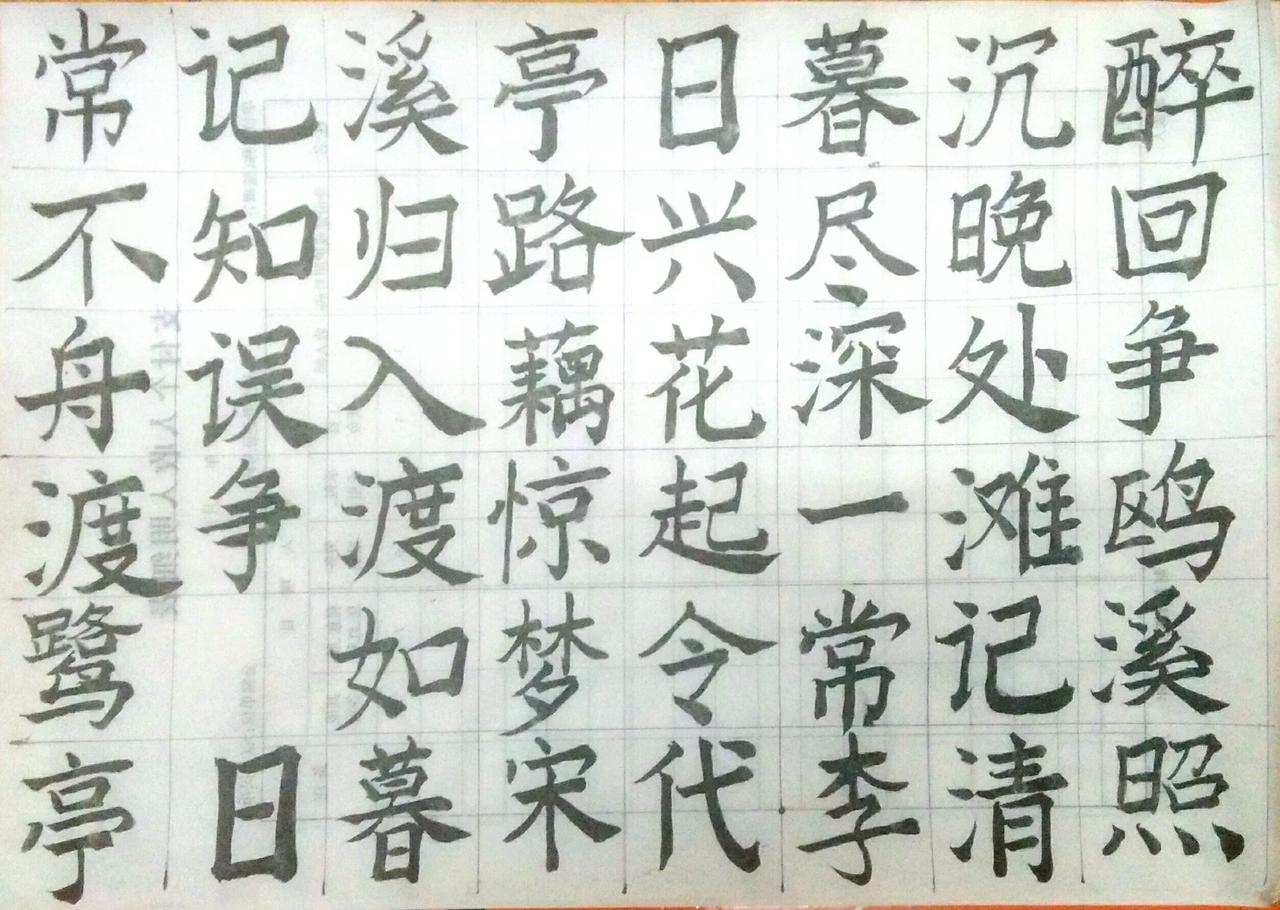 常记溪亭日暮沉醉
不知归路兴尽晚回
舟误入藕花深处争
渡争渡惊起一滩鸥
鹭 如梦令常记溪
亭日暮宋代李清照